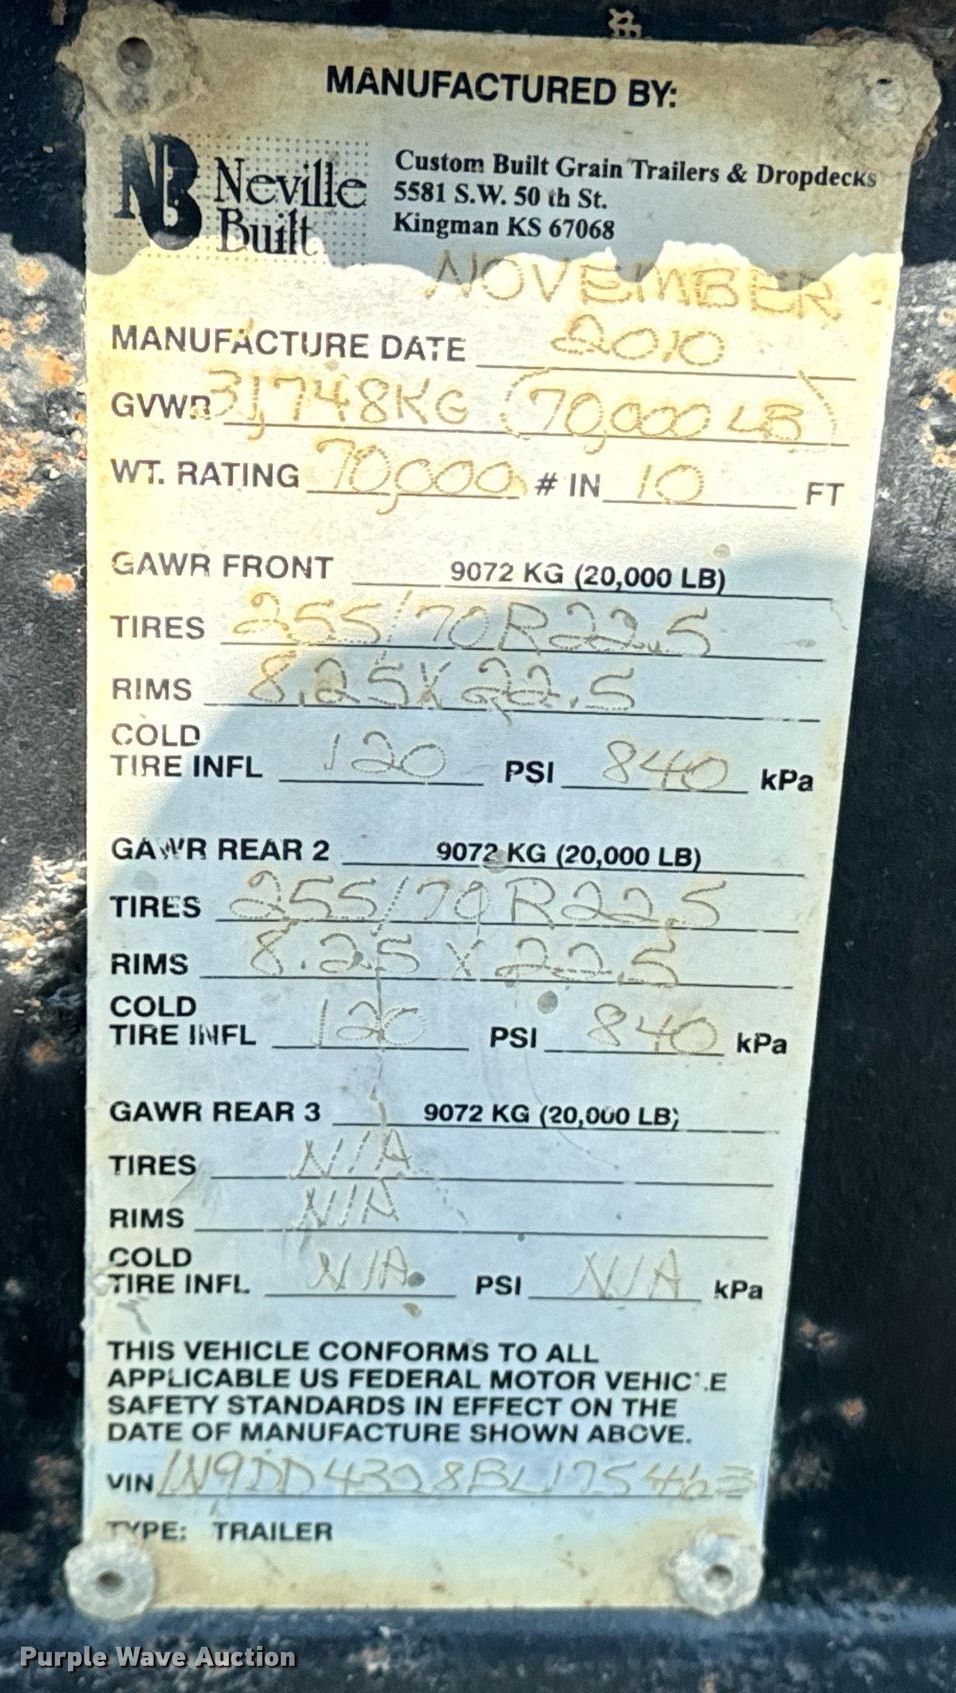 MANUFACTURED BY:
NB Neville Built
Custom Built Grain Trailers & Dropdecks
5581 S.W. 50 th St.
Kingman KS 67068
NOVEMBER
MANUFACTURE DATE 2010
GVWR 31,748KG (70,000 LB)
WT. RATING 70,000 # IN 10 FT
GAWR FRONT 9072 KG (20,000 LB)
TIRES 255/70R22.5
RIMS 8.25X22.5
COLD
TIRE INFL 120 PSI 840 kPa
GAWR REAR 2 9072 KG (20,000 LB)
TIRES 255/70R22.5
RIMS 8.25 X 22.5
COLD
TIRE INFL 120 PSI 840 kPa
GAWR REAR 3 9072 KG (20,000 LB)
TIRES N/A
RIMS N/A
COLD
TIRE INFL N/A PSI N/A kPa
THIS VEHICLE CONFORMS TO ALL
APPLICABLE US FEDERAL MOTOR VEHICLE
SAFETY STANDARDS IN EFFECT ON THE
DATE OF MANUFACTURE SHOWN ABOVE.
VIN
TYPE: TRAILER
Purple Wave Auction